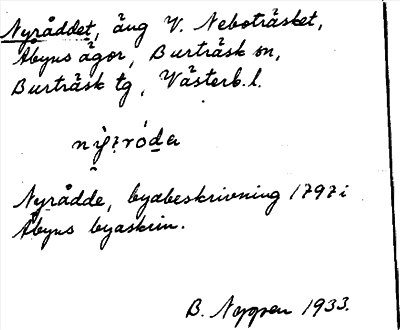 Nyråddet, äng V. Neboträsket,
Åbyns ägor, Burträsk sn,
Burträsk tg, Västerb. l.
Nyrådde, byabeskrivning 1797 i
Åbyns byaskrin.
B. Nygren 1933.